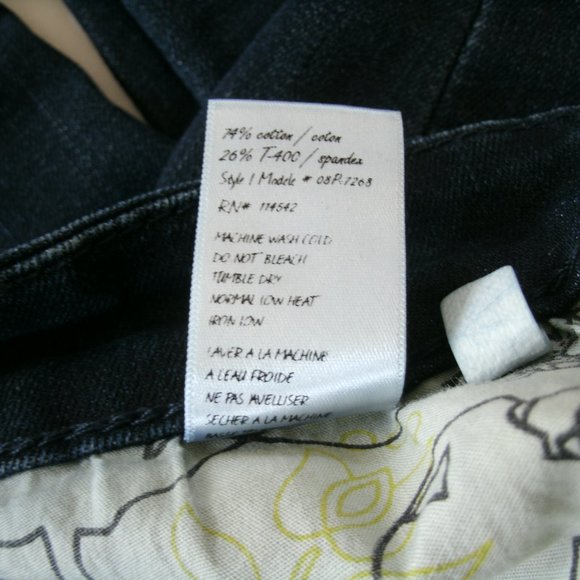 74% cotton / coton
26% T-400 / spandex
Style / Modele # 08P-7268
RN# 114542
MACHINE WASH COLD
DO NOT BLEACH
TUMBLE DRY
NORMAL LOW HEAT
IRON LOW
LAVER A LA MACHINE
A LEAU FROIDE
NE PAS JAVELLISER
SECHER A LA MACHINE